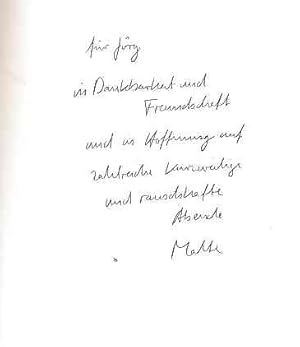 für Jörg
in Dankbarkeit und
Freundschaft
und in Hoffnung auf
zahlreiche kurzweilige
und rauschhafte
Abende
Malte